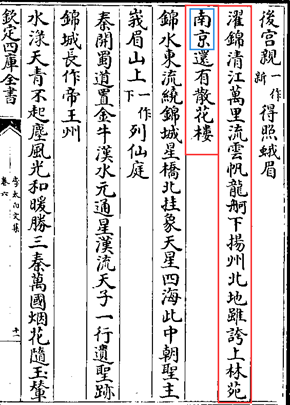 後宮親一作新得照蛾眉
濯錦清江萬里流雲帆龍舸下揚州北地雖誇上林苑
南京還有散花樓
錦水東流繞錦城星橋北挂象天星四海此中朝聖主
峩眉山上一作下列仙庭
秦開蜀道置金牛漢水元通星漢流天子一行遺聖跡
錦城長作帝王州
水淥天青不起塵風光和暖勝三秦萬國烟花隨玉輦
欽定四庫全書
李太白文集
卷六
十一